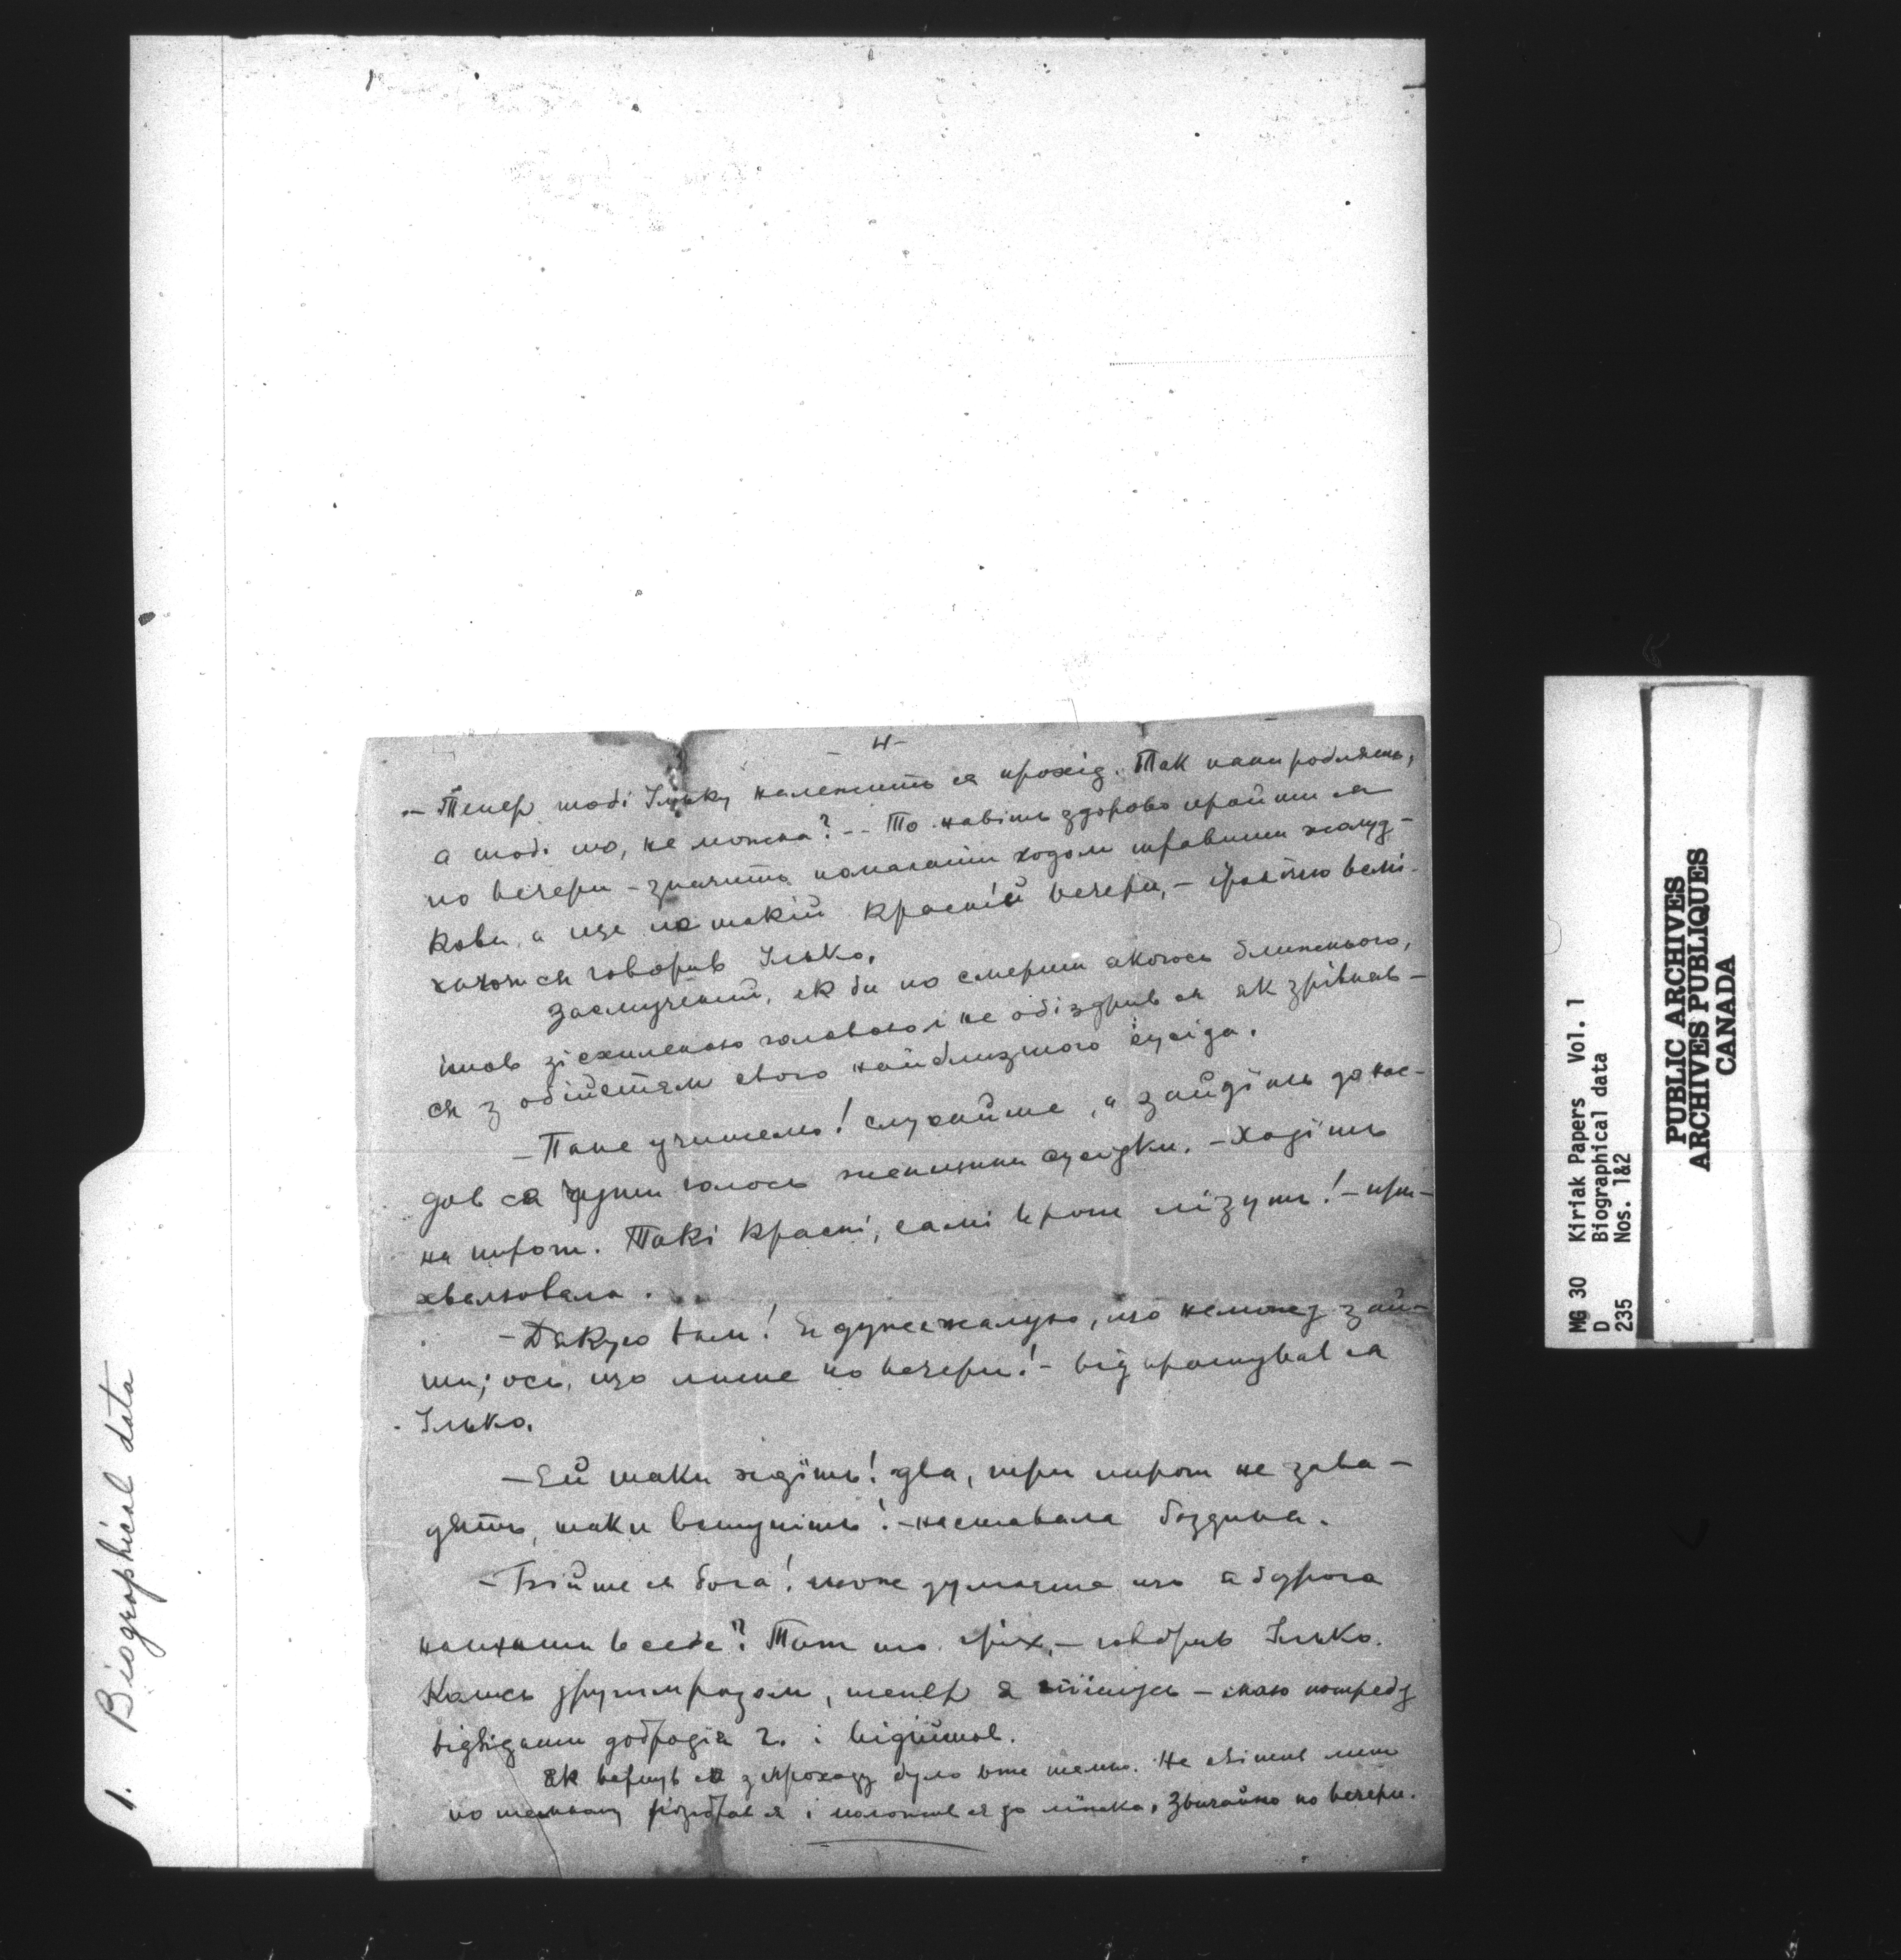 -4-
— Тепер тобі Ільку належить ся прохід. Так пани роблять,
а тобі що, не можна? -- То навіть здорово пройти ся
по вечери - значить помагати ходом травити жолуд-
кови, а ще по такій красній вечери, -
говорив Ілько.
Засмучений, як би по смерти якогось ближнього,
ішов зі схиленою головою і не обіздрив ся як зрівнав-
ся з обійстям свого найблизшого сусіда.
— Пане учителю! слухайте, а зайдіть до нас -
дав ся чути голось женщини сусідки. - Ходіть
на пироги. Такі красні, самі в рот лізуть! - при-
хвалювала.
— Дякую Вам! Я дуже жалую, що не можу зай-
ти; ось, що лише по вечери! - відпрошував ся
Ілько.
— Ей таки ходіть! два, три пироги не зава-
дять, таки вступіть! - наставала ґаздиня.
— Бійте ся бога! може думаєте що я здурів
напхати в себе? Тож то гріх, - говорив Ілько.
Колись другим разом, тепер я спішусь - маю потребу
відвідати добродія Г. і відійшов.
Як вернув ся з проходу було вже темно. Не світив
по темному розібрав ся і положив ся до ліжка. Звичайно по вечери.
1. Biographical data
MG 30 Kiriak Papers Vol. 1
D Biographical data
235 Nos. 1&2
PUBLIC ARCHIVES
ARCHIVES PUBLIQUES
CANADA